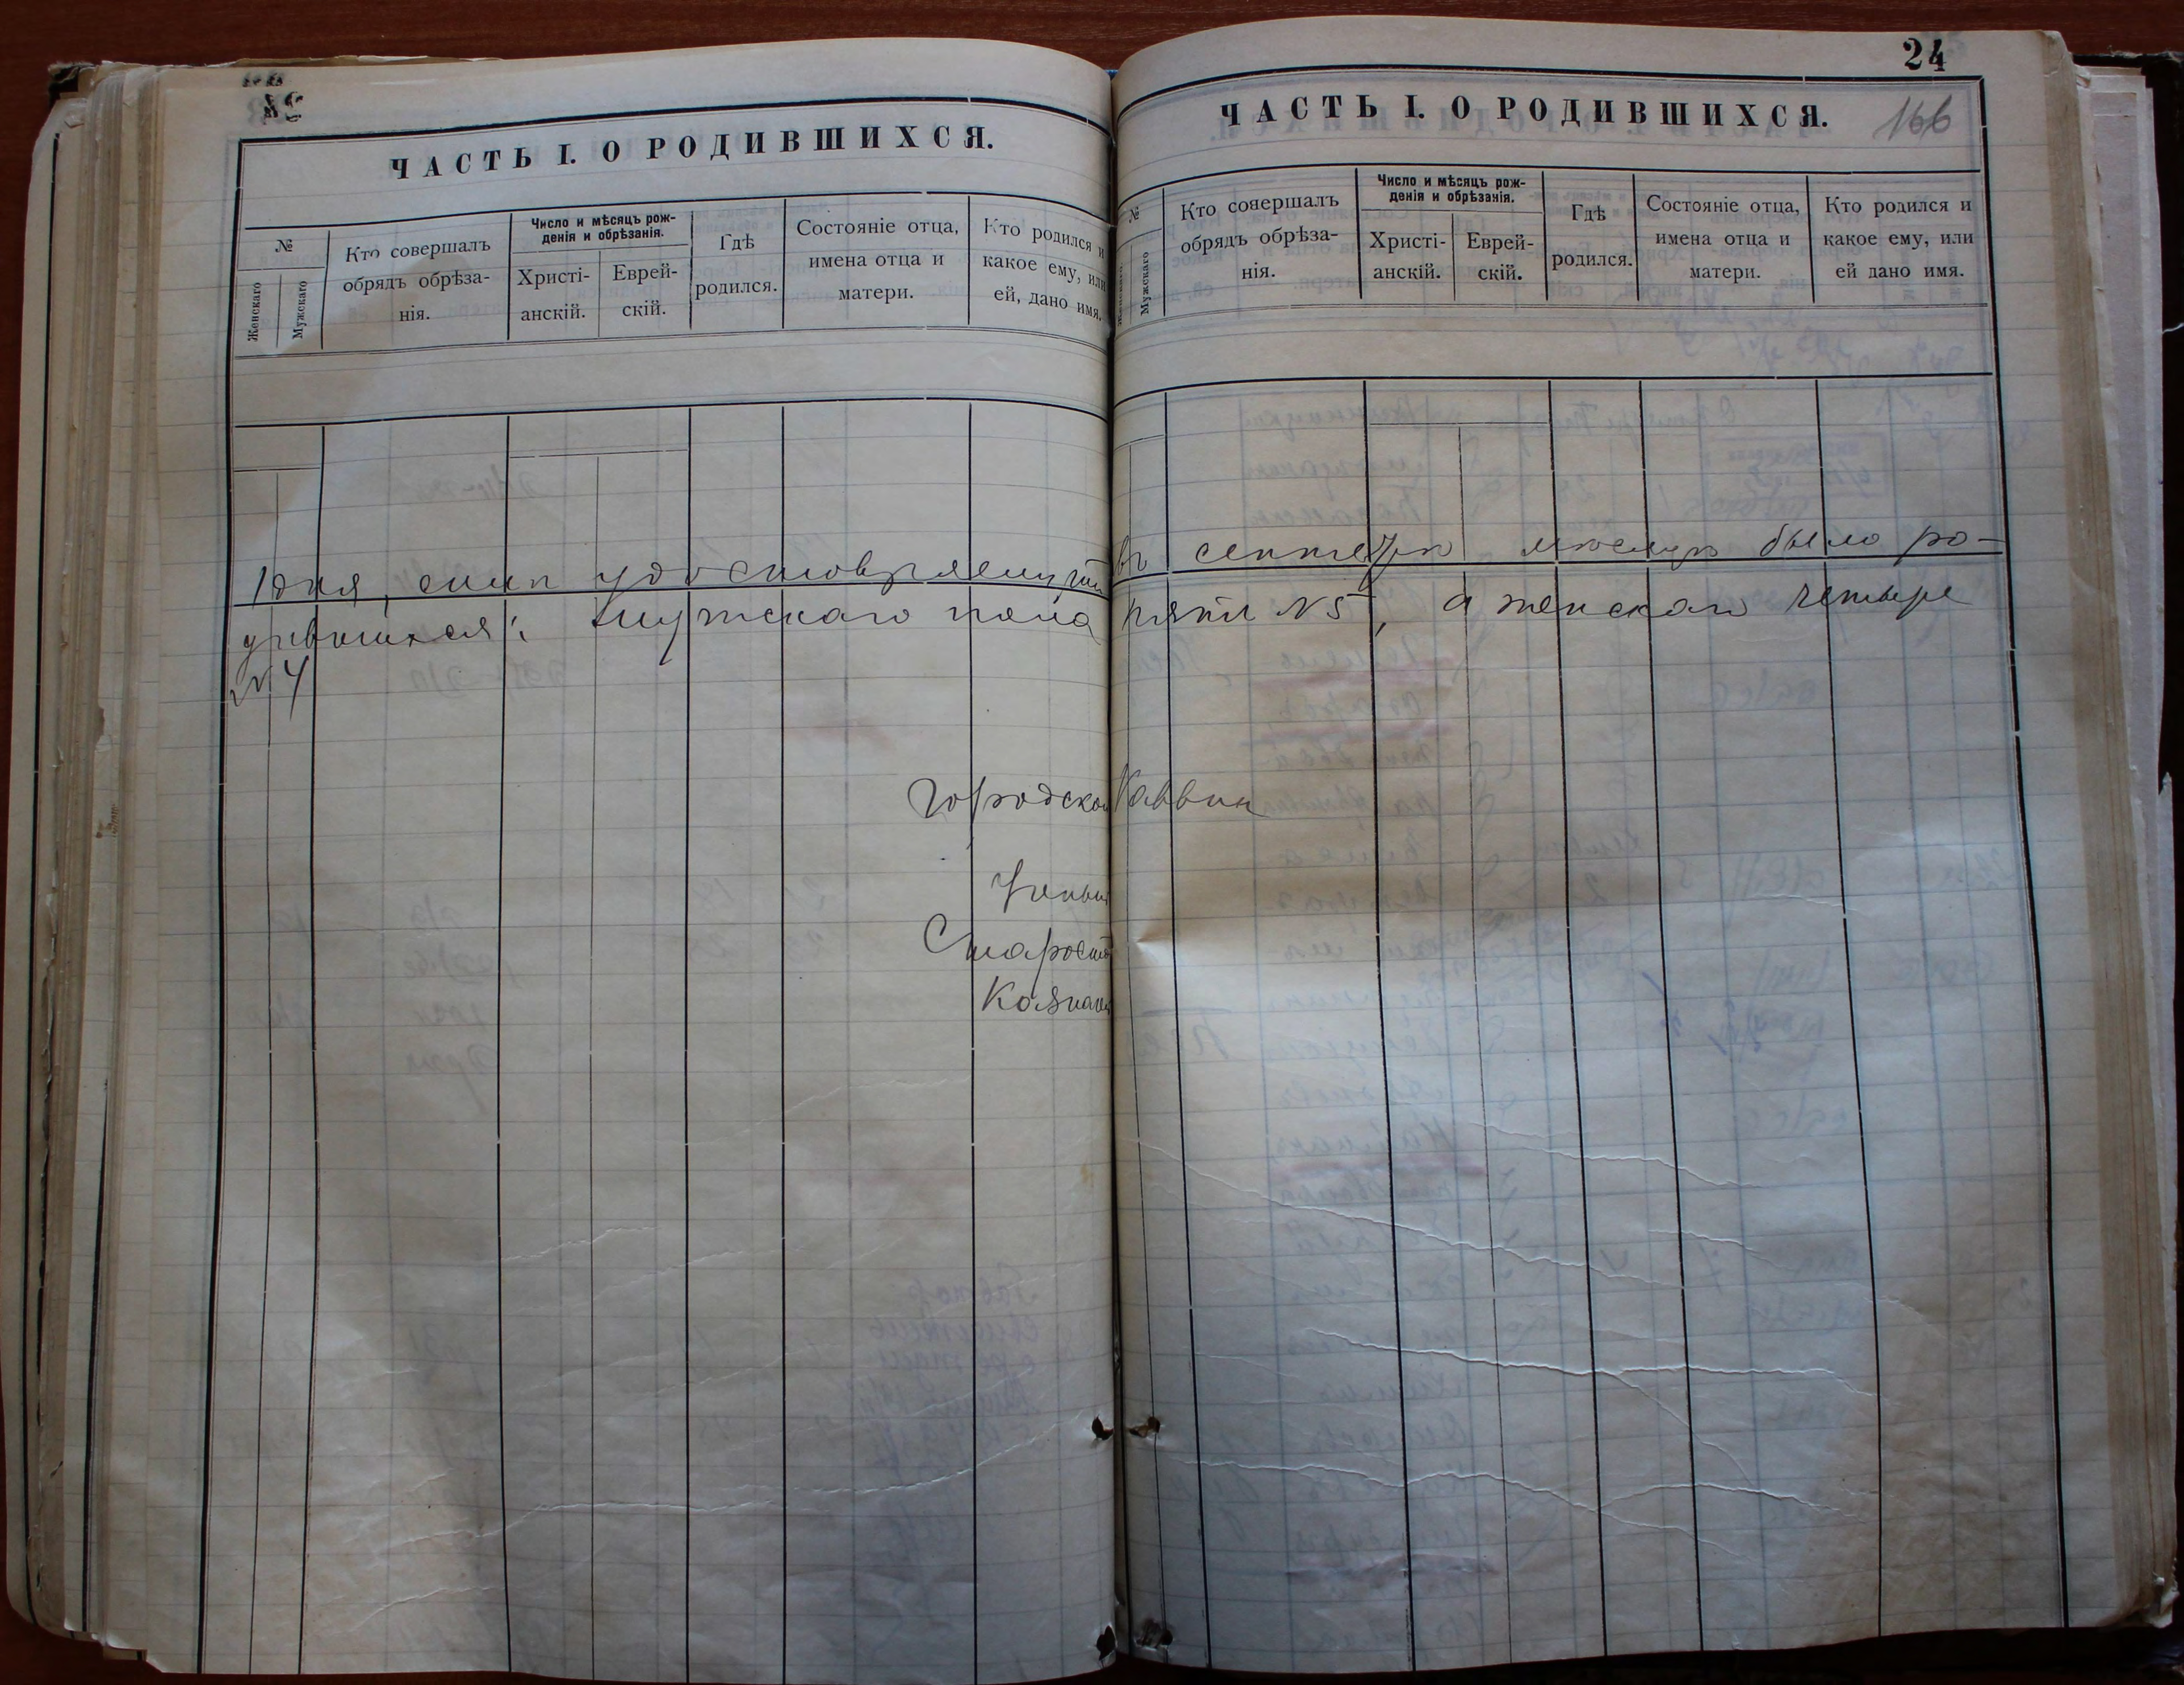 24
ЧАСТЬ I. О РОДИВШИХСЯ.
№
Женскаго
Мужскаго
Кто совершалъ
обрядъ обрѣза-
нія.
Число и мѣсяцъ рож-
денія и обрѣзанія.
Христі-
анскій.
Еврей-
скій.
Гдѣ
родился.
Состояніе отца,
имена отца и
матери.
Кто родился и
какое ему, или
ей, дано имя.
ЧАСТЬ I. О РОДИВШИХСЯ.
166
№
Мужскаго
Кто совершалъ
обрядъ обрѣза-
нія.
Число и мѣсяцъ рож-
денія и обрѣзанія.
Христі-
анскій.
Еврей-
скій.
Гдѣ
родился.
Состояніе отца,
имена отца и
матери.
Кто родился и
какое ему, или
ей дано имя.
симъ въ сентябрѣ мѣсяцѣ было ро-
дившихся: мужскаго пола пять №5, а женскаго четыре
№4
Городской Раввин
Ученый
Староста
Казначей